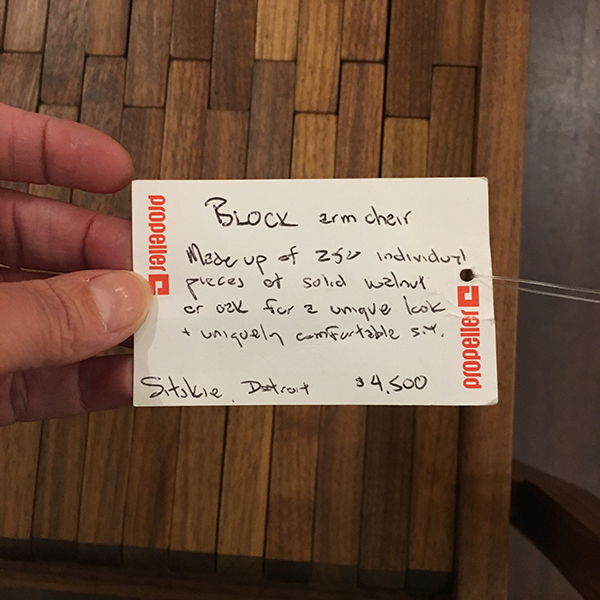 propeller
BLOCK arm chair
Made up of 250 individual
pieces of solid walnut
or oak for a unique look
+ uniquely comfortable sit.
propeller
Sitskie, Detroit $4,500